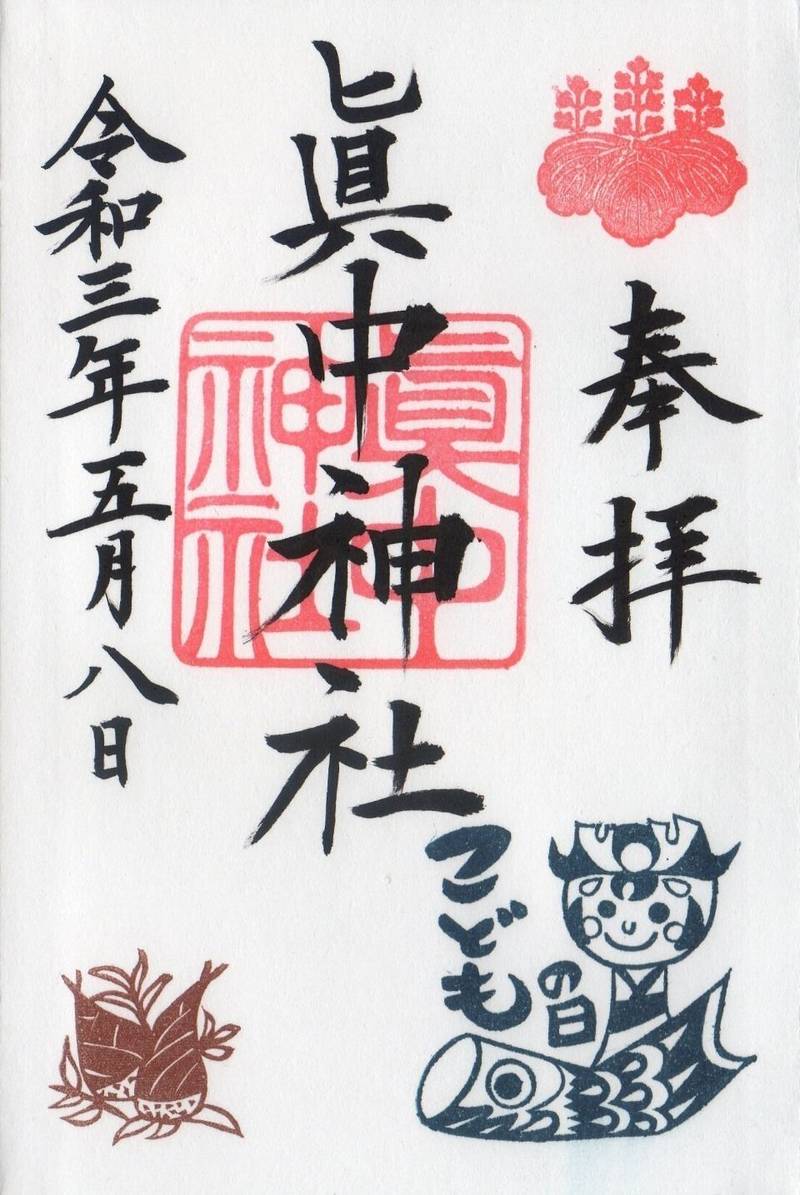 奉拝
眞中神社
眞中
神社
令和三年五月八日
こども
の日